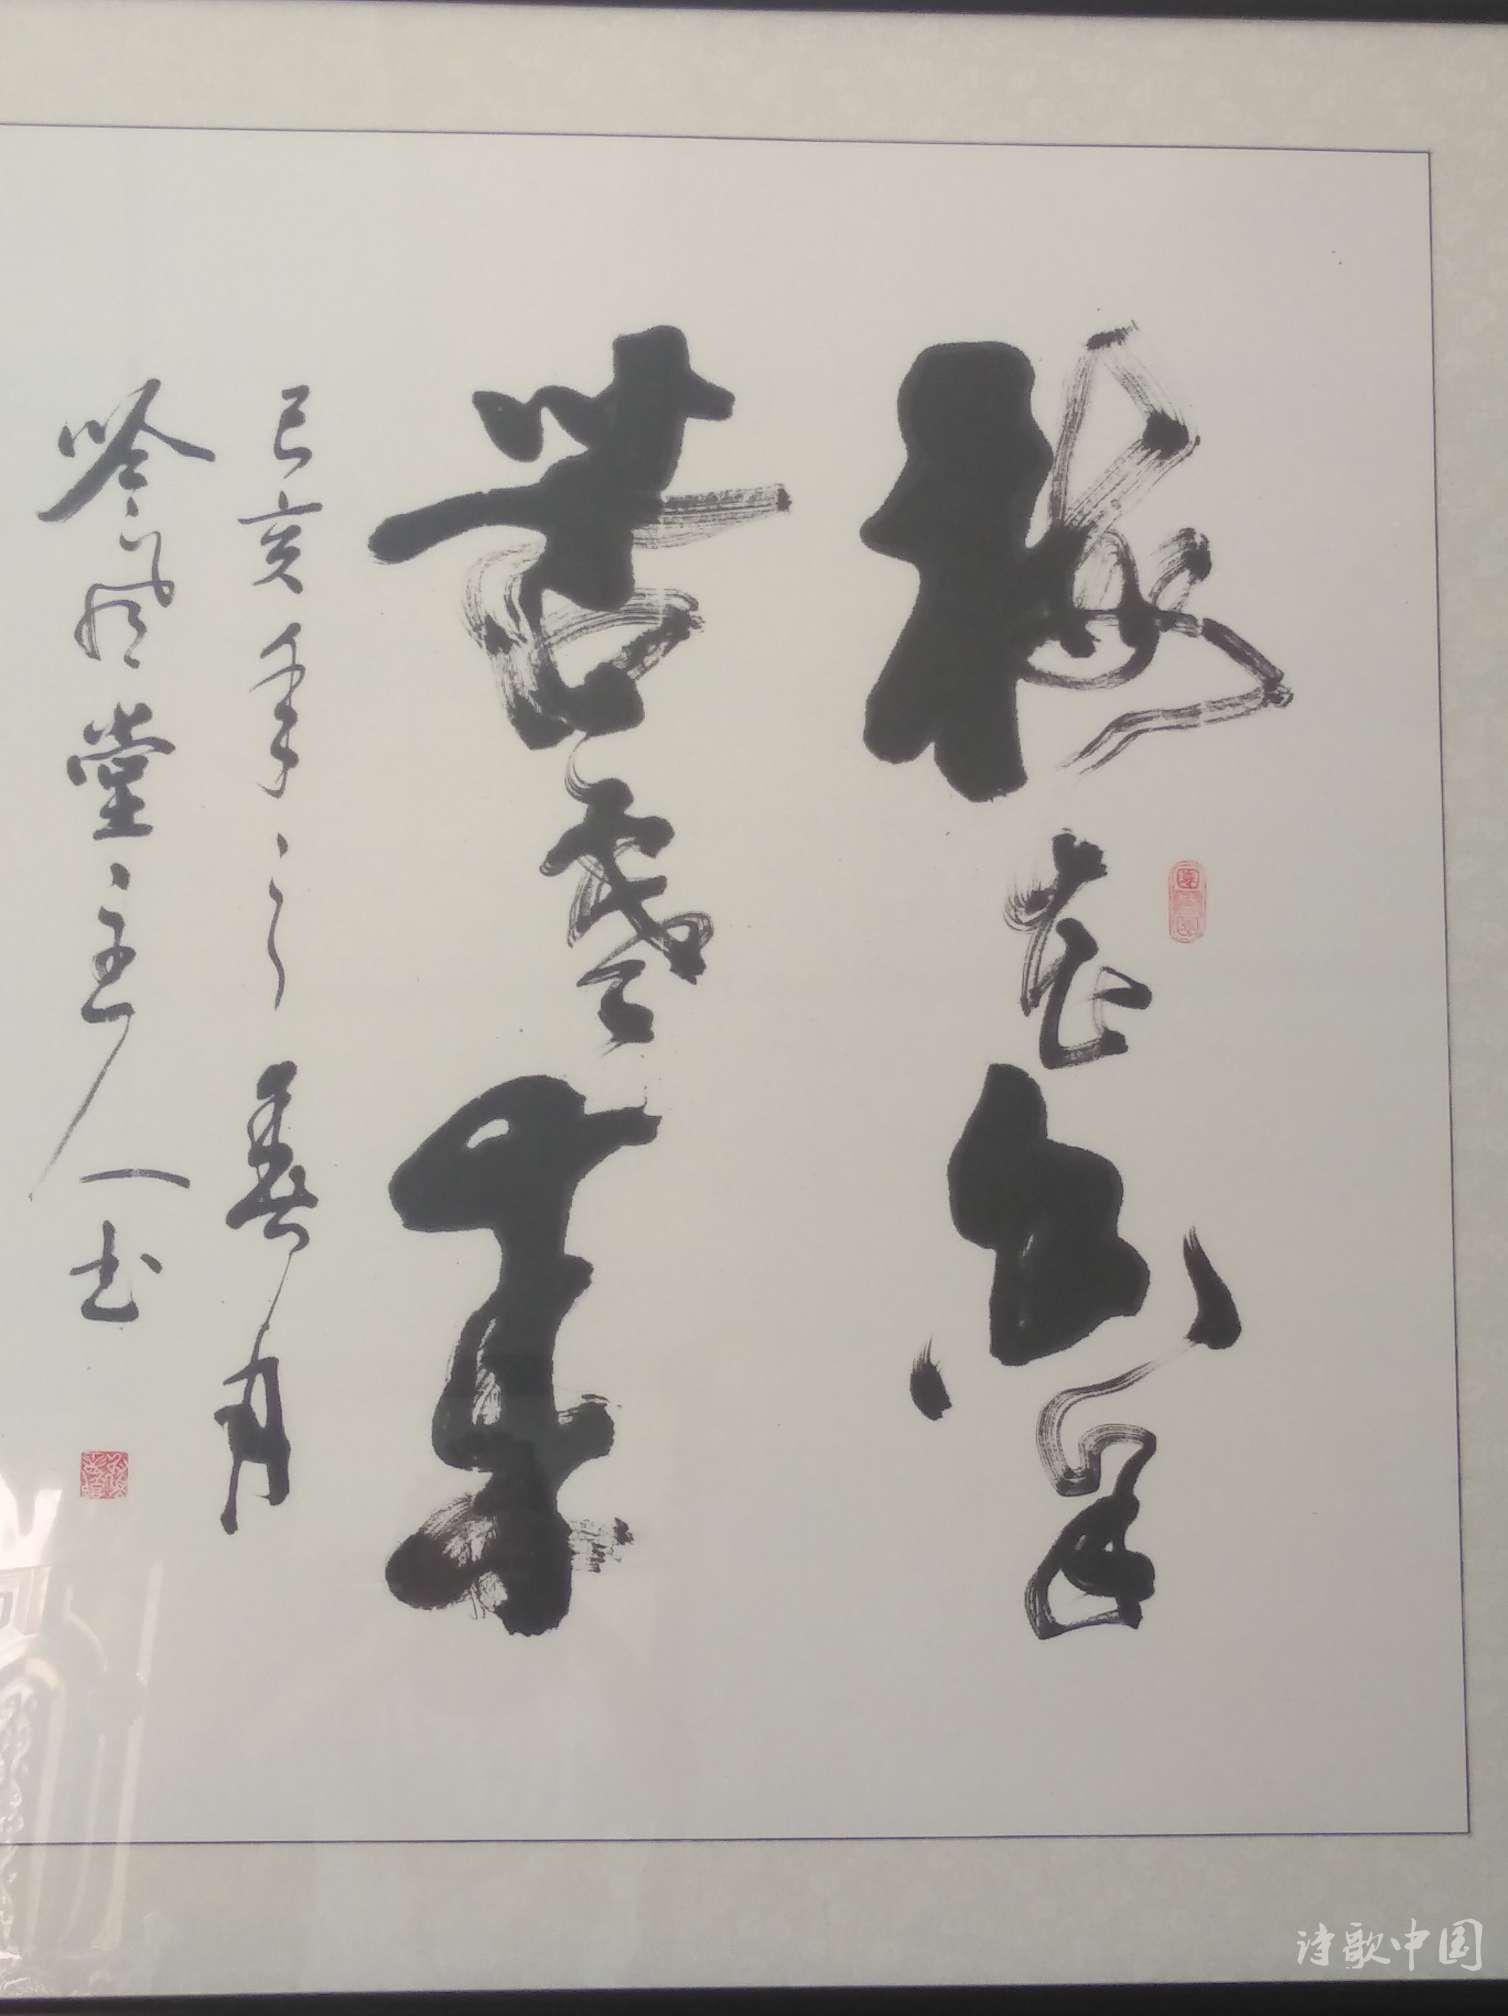 梅花香自
苦寒来
己亥年之春月
吟风堂主人书
诗歌中国